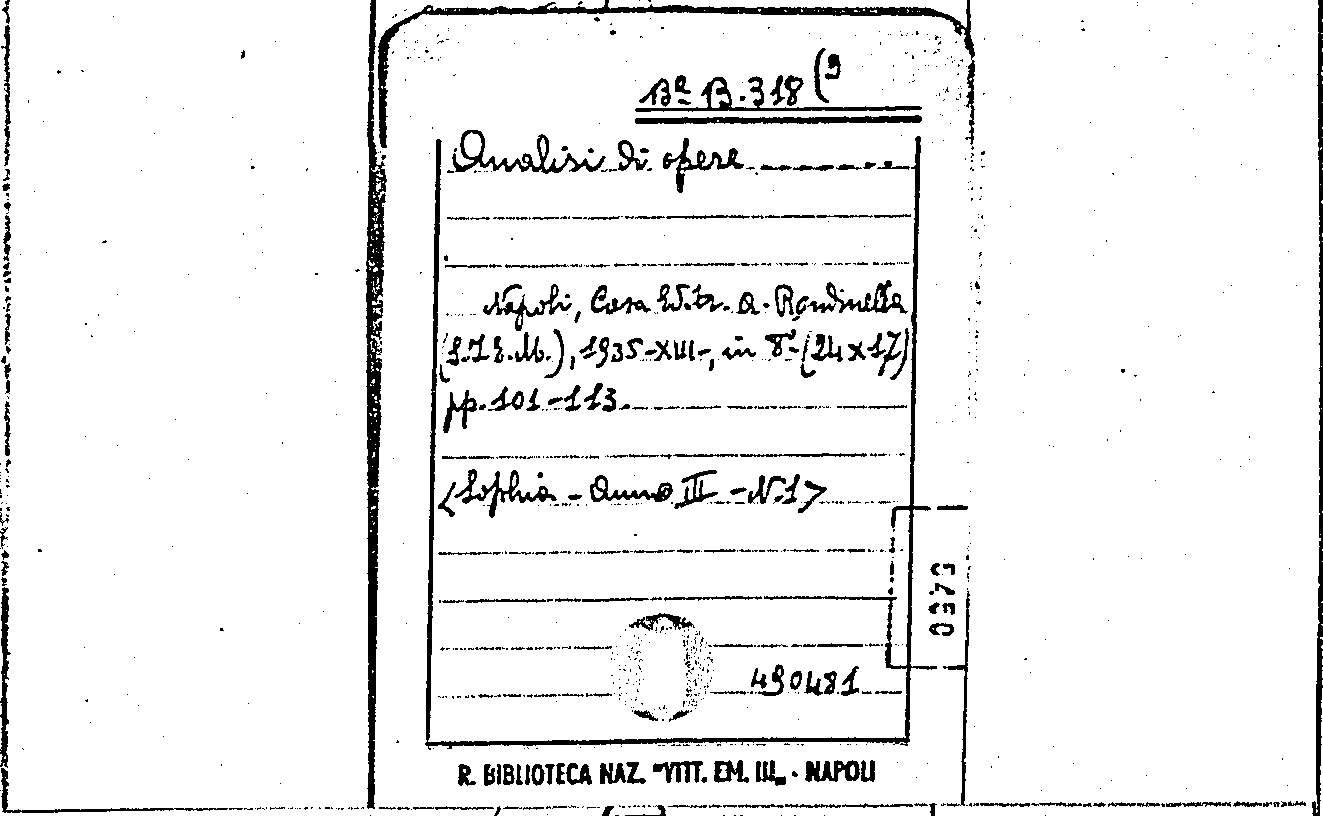 Bª B. 318 (9
Analisi di opere ........
Napoli, Casa Editr. A. Rondinella
(S.I.E.M.), 1935-XIII-, in 8º (24 x 17)
pp. 101-113.
<Sophia - Anno III - N.1>
5450
490481
R. BIBLIOTECA NAZ. "VITT. EM. III„ - NAPOLI